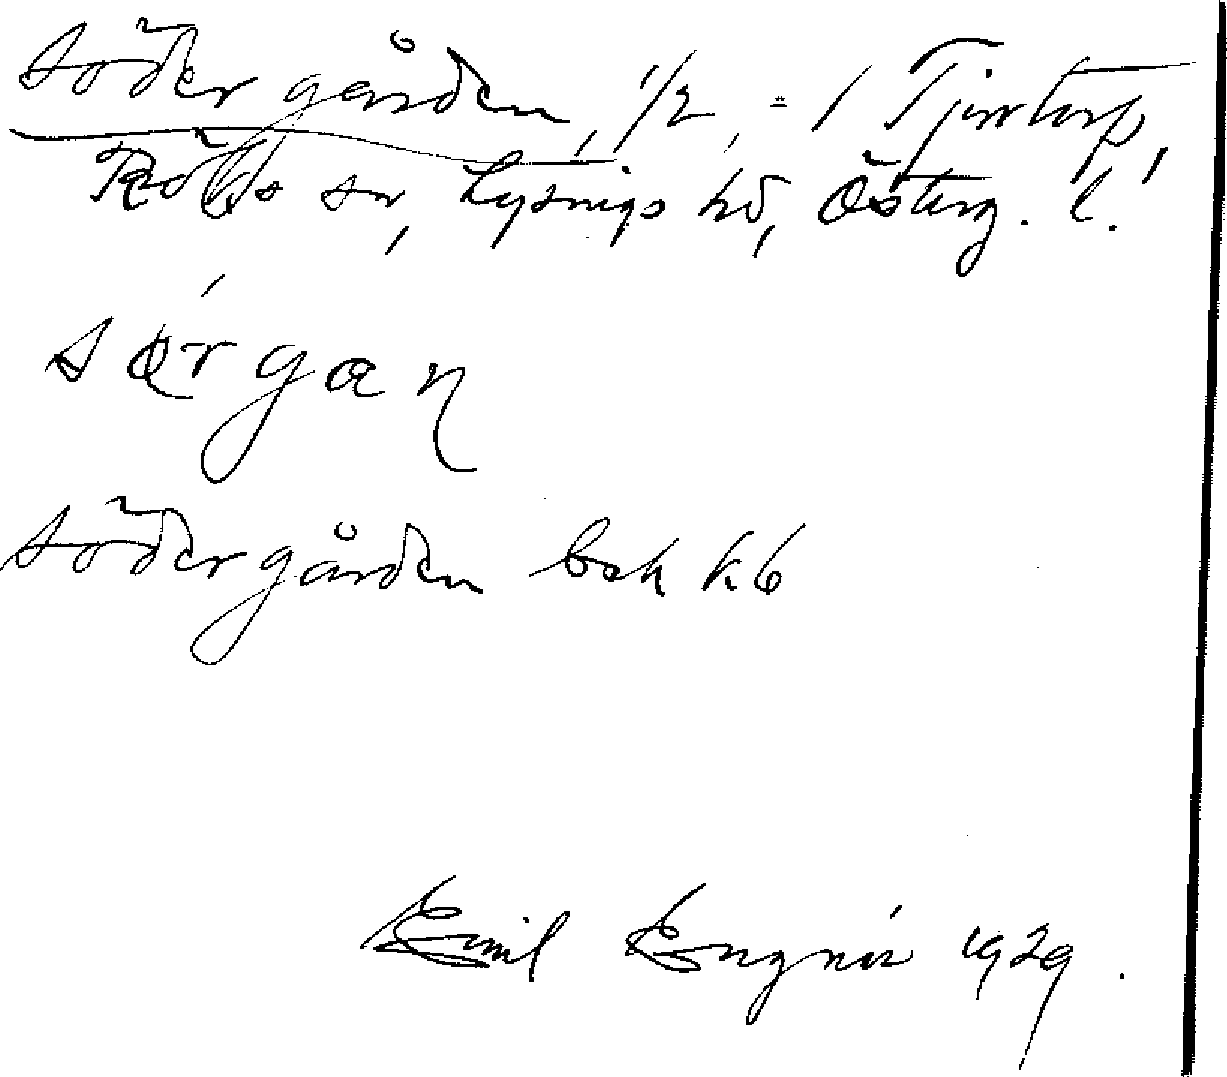 Södergården, 1/2, - 1 Tjurtorp,
Röks sn, Lysings hd, Österg. l.
Södergården bsk kb
Emil Engnér 1929.